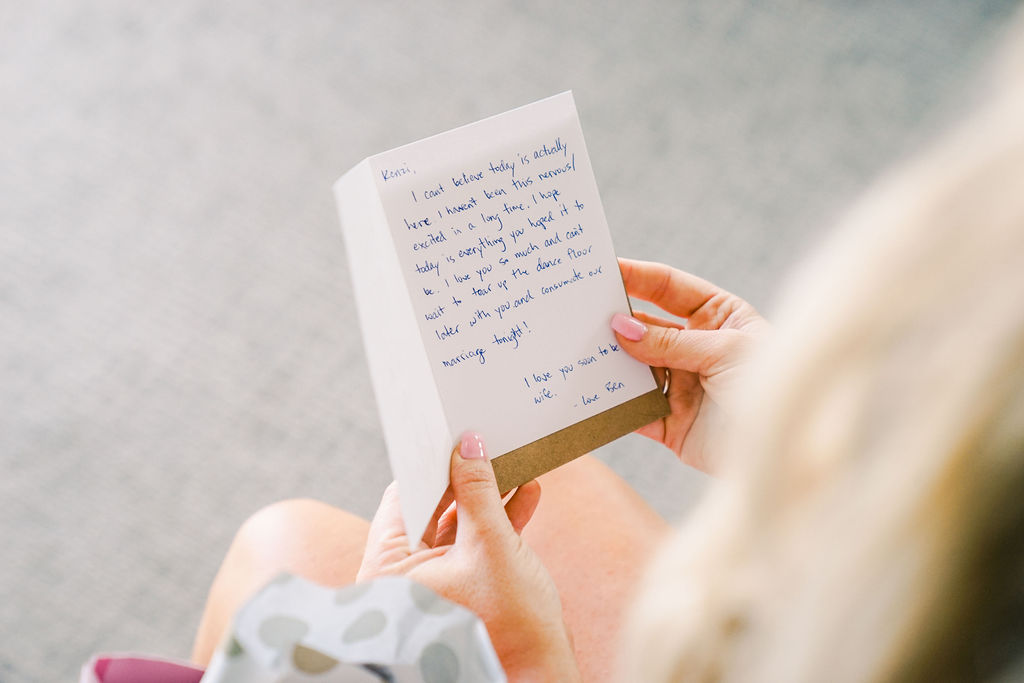 Kenzi,
I cant believe today is actually
here. I havent been this nervous/
excited in a long time. I hope
today is everything you hoped it to
be. I love you so much and can't
wait to tear up the dance floor
later with you and consumate our
marriage tonight!
I love you soon to be
wife.
- Love Ben